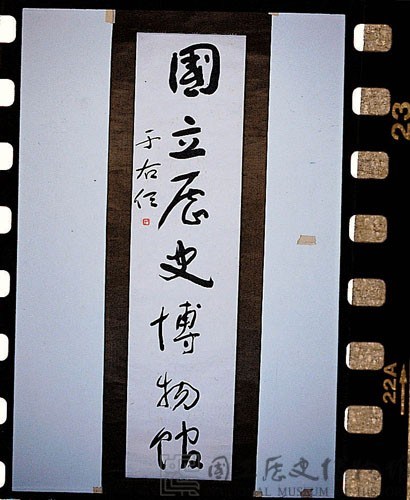 國立歷史博物館
于右任
23
22A
國立歷史博
AL MUSEUM